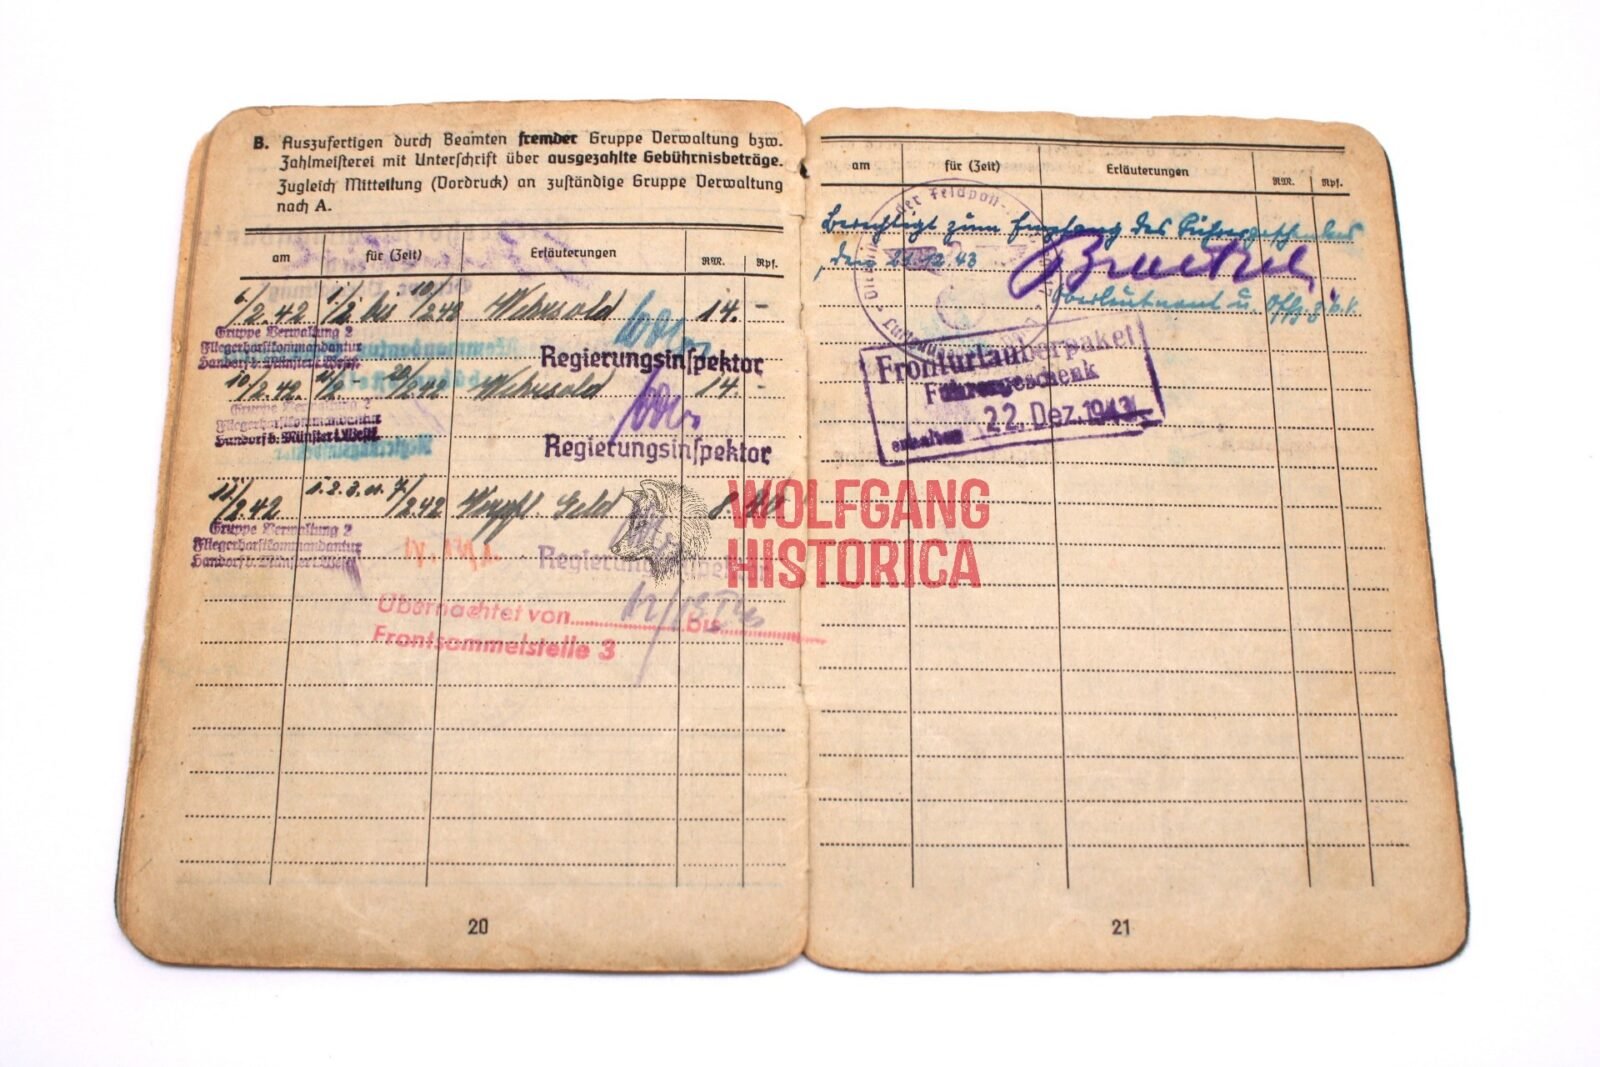 B. Auszufertigen durch Beamten fremder Gruppe Verwaltung bzw.
Zahlmeisterei mit Unterschrift über ausgezahlte Gebührnisbeträge.
Zugleich Mitteilung (Vordruck) an zuständige Gruppe Verwaltung
nach A.
am für (Zeit) Erläuterungen RM. Rpf.
6/2.42 1/2 bis 10/2 42 Wehrsold 14. -
Gruppe Verwaltung 2
Fliegerhorstkommandantur
Handorf b. Münster i. Westf.
Regierungsinspektor
10/2.42. 11/2 - 20/2 42 Wehrsold 14. -
Gruppe Verwaltung 2
Fliegerhorstkommandantur
Handorf b. Münster i. Westf.
Regierungsinspektor
/2 42 1. 2. 3. u. /2 42 Geld 8
Gruppe Verwaltung 2
Fliegerhorstkommandantur
Handorf b. Münster i. Westf.
Regierungsinspektor
Übernachtet von 12/13. bis
Frontsammelstelle 3
20
am für (Zeit) Erläuterungen RM. Rpf.
der Feldpost-
Berechtigt zum Empfang des Führergeschenkes
den 21.12.43
Oberleutnant u.
Fronturlauberpaket
Führergeschenk
erhalten 22. Dez. 1943
21
WOLFGANG
HISTORICA